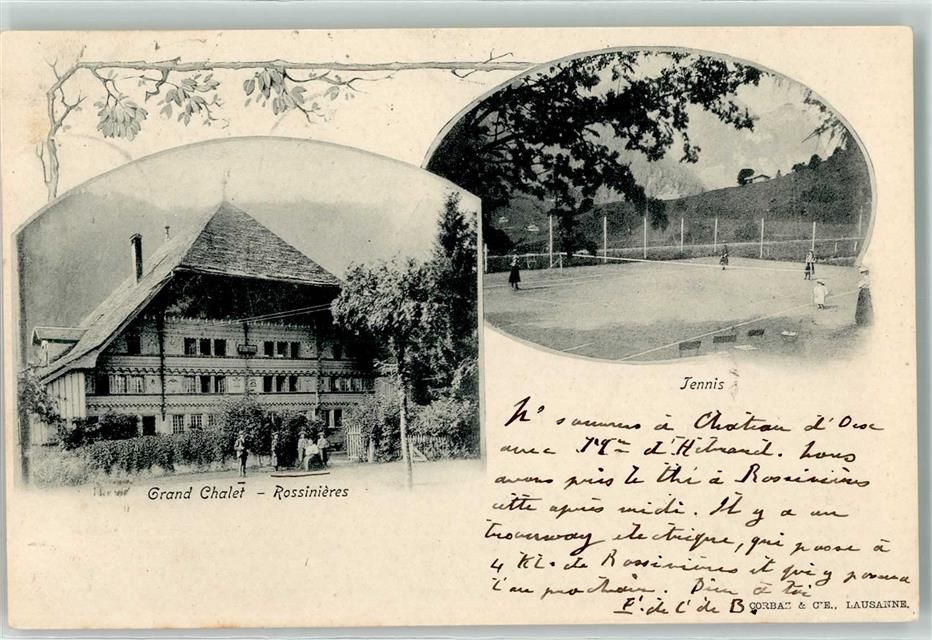 Tennis
Grand Chalet – Rossinières
sommes à Château d'Oex
avec d'Hibrand. Nous
avons pris le thé à Rossinières
cette après midi. Il y a un
tramway électrique, qui passe à
4 Kl. de Rossinières et qui y passera
l'an prochain. Dieu à toi
de B.
CORBAZ & CIE., LAUSANNE.